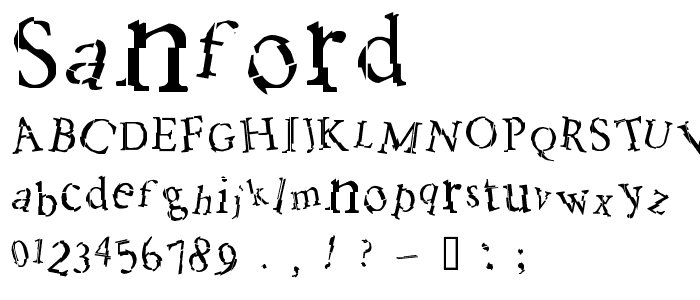 Sanford
ABCDEFGHIJKLMNOPQRSTUV
abcdefghijklmnopqrstuvwxyz
0123456789 . , ! ? – □ : ;